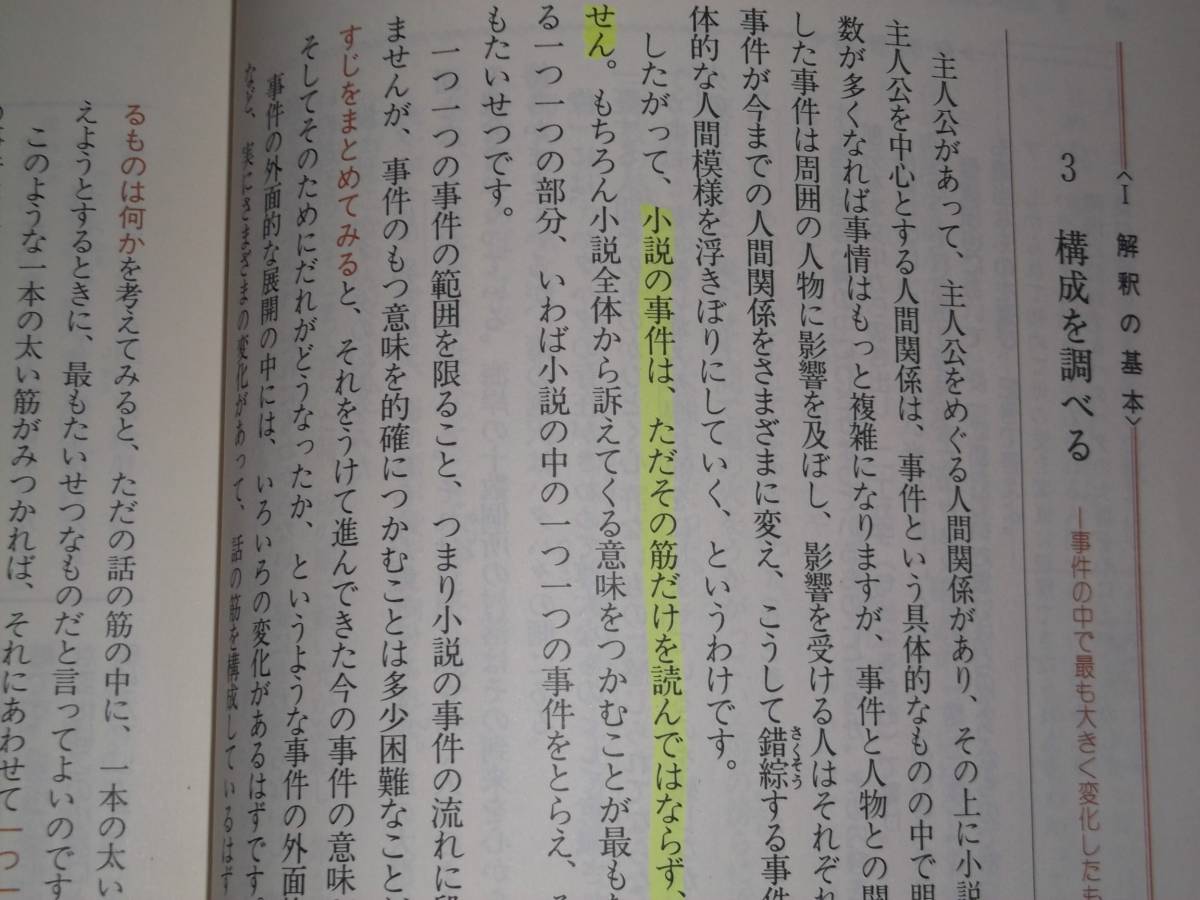 〈Ⅰ 解釈の基本〉
3 構成を調べる
―事件の中で最も大きく変化したも
主人公があって、主人公をめぐる人間関係があり、その上に小説
主人公を中心とする人間関係は、事件という具体的なものの中で明
数が多くなれば事情はもっと複雑になりますが、事件と人物との関
した事件は周囲の人物に影響を及ぼし、影響を受ける人はそれぞれ
事件が今までの人間関係をさまざまに変え、こうして錯綜する事件
さくそう
体的な人間模様を浮きぼりにしていく、というわけです。
したがって、小説の事件は、ただその筋だけを読んではならず、
せん。もちろん小説全体から訴えてくる意味をつかむことが最も
る一つ一つの部分、いわば小説の中の一つ一つの事件をとらえ、
もたいせつです。
一つ一つの事件の範囲を限ること、つまり小説の事件の流れに
ませんが、事件のもつ意味を的確につかむことは多少困難なこと
すじをまとめてみると、それをうけて進んできた今の事件の意味
そしてそのためにだれがどうなったか、というような事件の外面
事件の外面的な展開の中には、いろいろの変化があるはずです。
など、実にさまざまの変化があって、話の筋を構成しているはず
るものは何かを考えてみると、ただの話の筋の中に、一本の太い
えようとするときに、最もたいせつなものだと言ってよいのです
このような一本の太い筋がみつかれば、それにあわせて一つ一